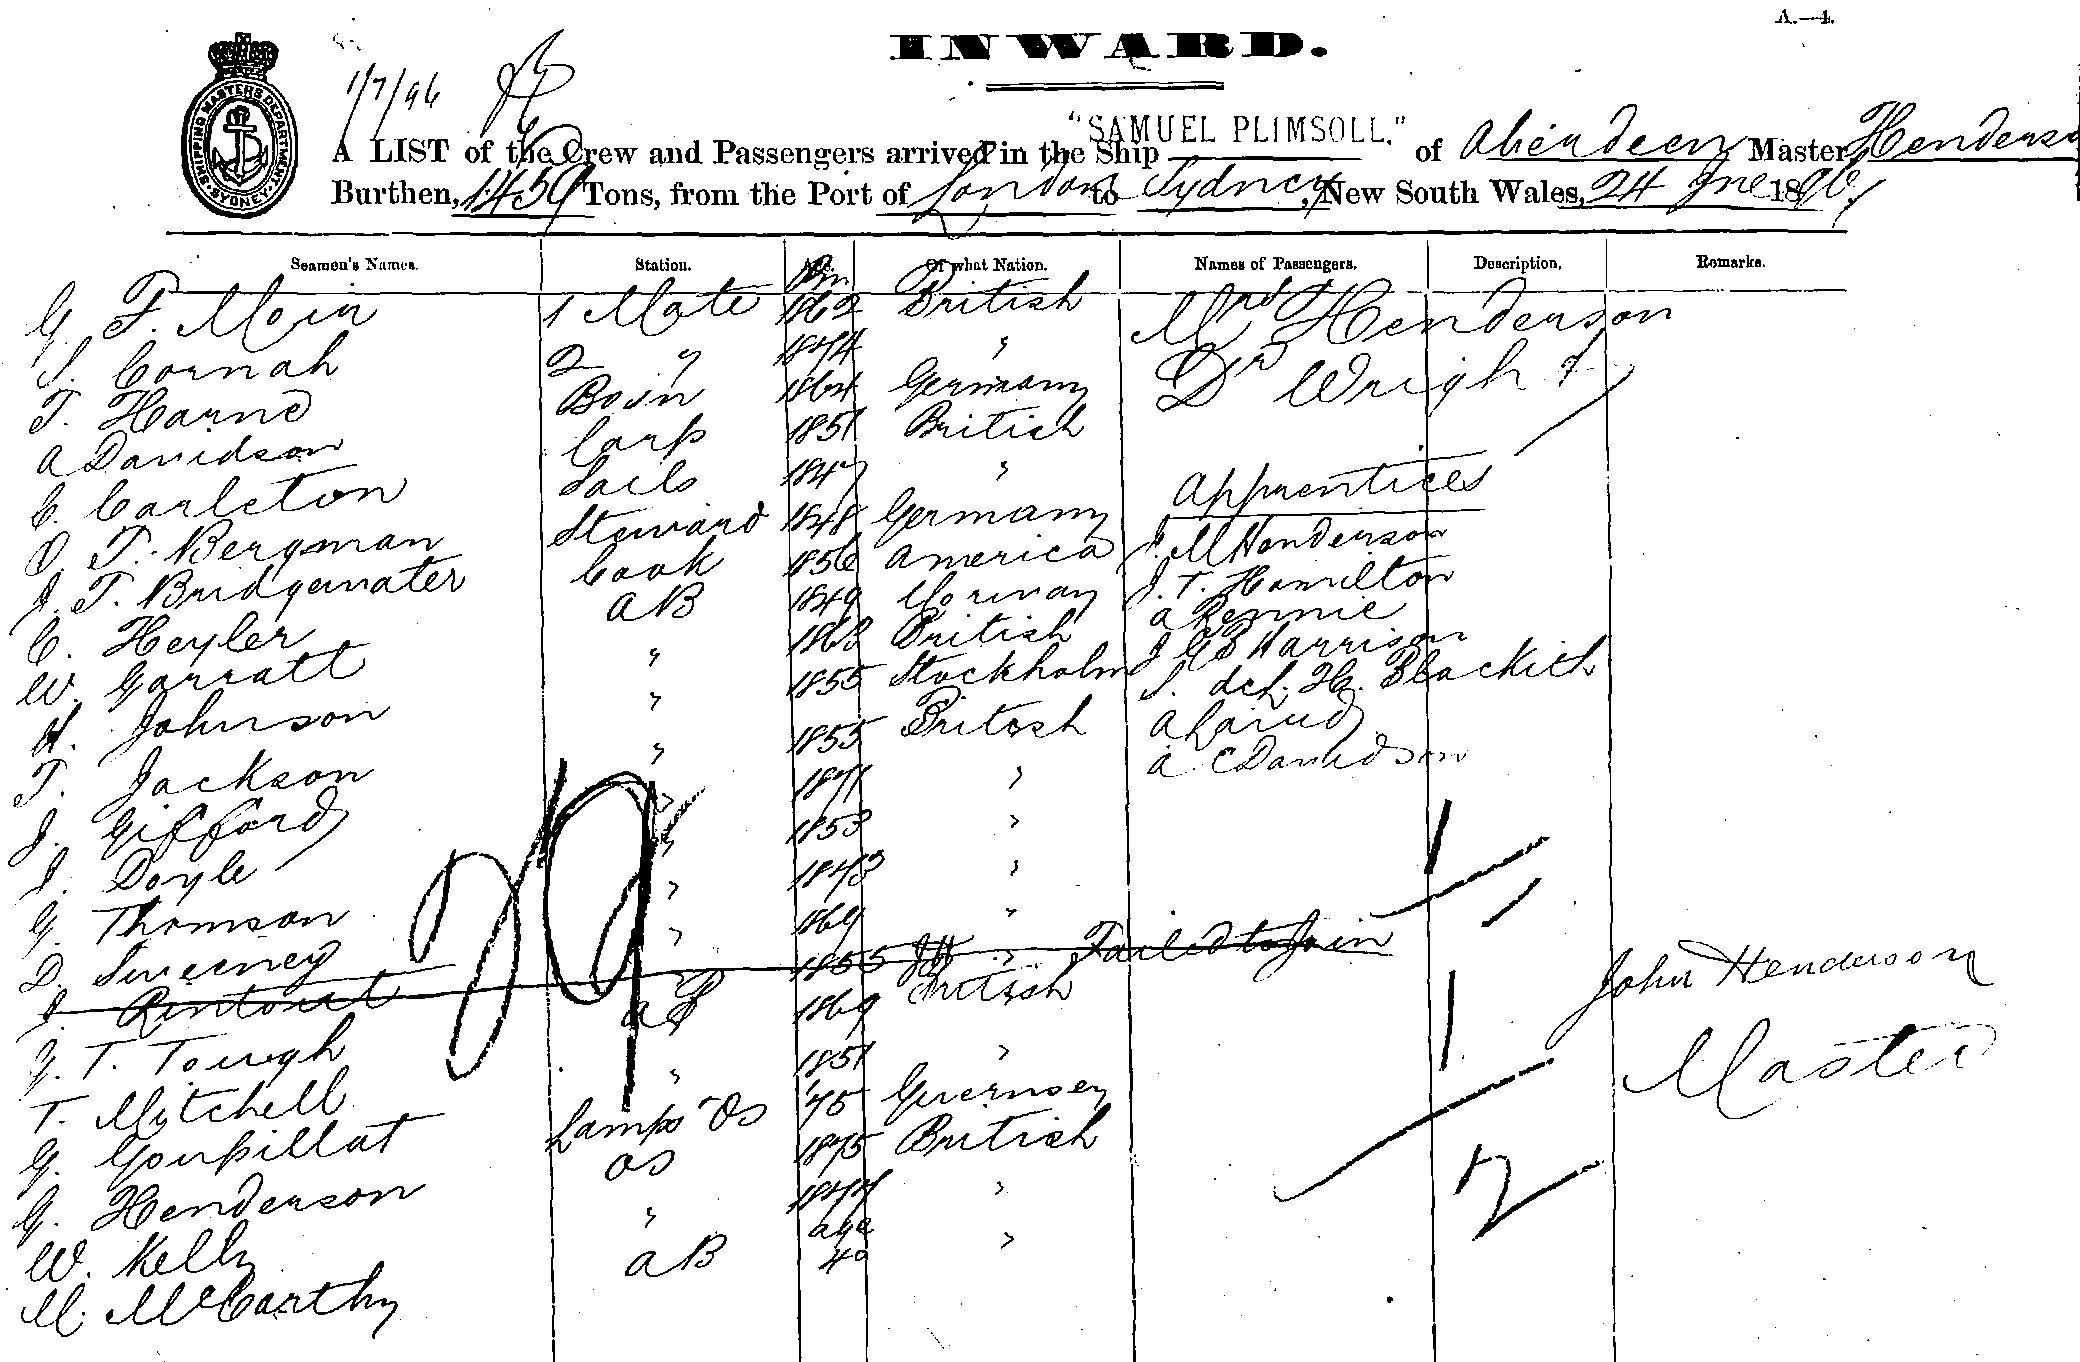 A.—4.
INWARD.
1/7/96
SHIPPING MASTERS DEPARTMENT. SYDNEY.
"SAMUEL PLIMSOLL."
A LIST of the Crew and Passengers arrived in the Ship of Aberdeen Master Henderso
Burthen, 1459 Tons, from the Port of London to Sydney, New South Wales, 24 Jne 1896
Seamen's Names. Station. Age. Of what Nation. Names of Passengers. Description. Remarks.
Bn
G. F. Moir 1 Mate 1862 British Mrs Henderson
S. Cornah 2 " 1874 " Dr Wright
T. Harnd Bosn 1864 Germany
A Davidson Carp 1851 British
C. Carleton Sails 1847 " Apprentices
O. T. Bergman Steward 1848 Germany J. M Henderson
J. T. Bridgewater Cook 1856 America J. T. Hamilton
C. Heyler AB 1849 Norway A Rennie
W. Garratt " 1863 British J G B Harrison
H. Johnson " 1855 Stockholm S. H. Blackith
T. Jackson " 1855 British A Laird
J. Gifford " 1871 " A C Davidson
J. Doyle " 1853 "
G. Thomson " 1873 "
D. Sweeney " 1869 "
J. Rintoul " 1855 " Failed to Join
G. T. Tough AB 1869 British
T. Mitchell " 1851 "
G. Goupillat Lamps OS '75 Guernsey
G. Henderson OS 1875 British
W. Kelly " 1877 "
M. McCarthy AB age 40 "
1
1
2
29
John Henderson
Master